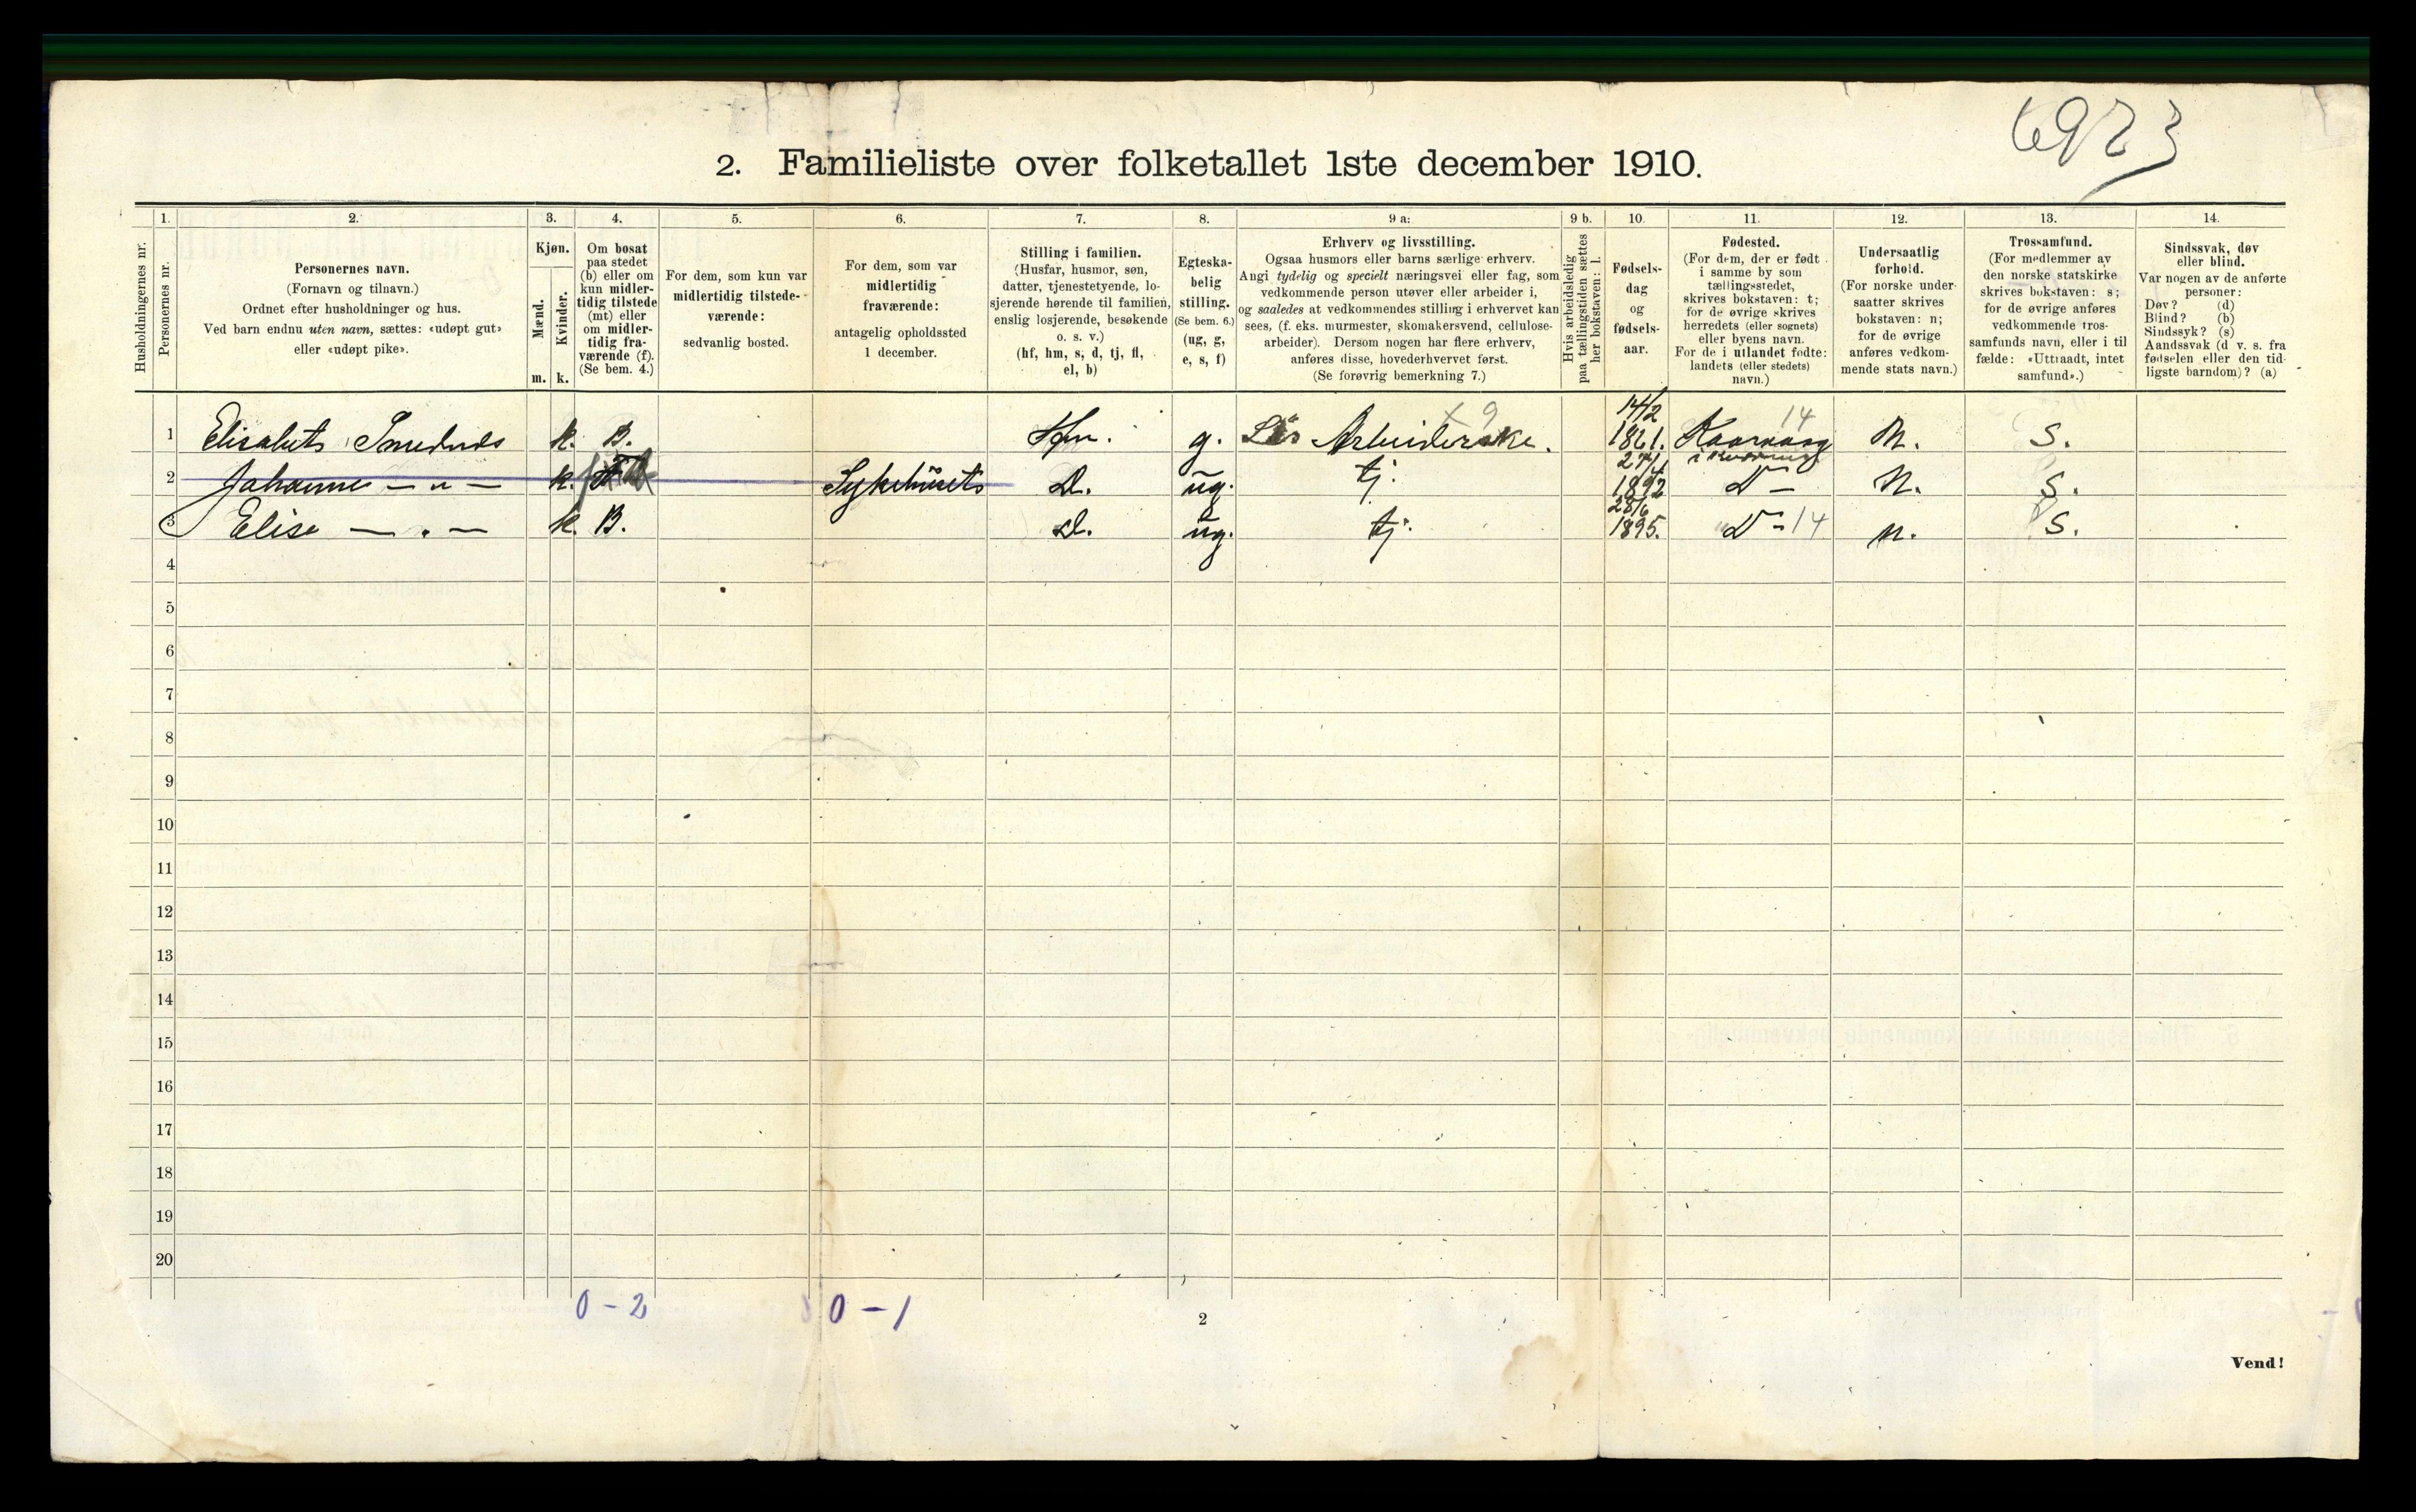 6923
2. Familieliste over folketallet 1ste december 1910.
1. 2. 3. 4. 5. 6. 7. 8. 9 a: 9 b. 10. 11. 12. 13. 14.
Husholdningernes nr.
Personernes nr.
Personernes navn.
(Fornavn og tilnavn.)
Ordnet efter husholdninger og hus.
Ved barn endnu uten navn, sættes: «udøpt gut»
eller «udøpt pike».
Kjøn.
Mænd.
Kvinder.
m. k.
Om bosat
paa stedet
(b) eller om
kun midler-
tidig tilstede
(mt) eller
om midler-
tidig fra-
værende (f).
(Se bem. 4.)
For dem, som kun var
midlertidig tilstede-
værende:
sedvanlig bosted.
For dem, som var
midlertidig
fraværende:
antagelig opholdssted
1 december.
Stilling i familien.
(Husfar, husmor, søn,
datter, tjenestetyende, lo-
sjerende hørende til familien,
enslig losjerende, besøkende
o. s. v.)
(hf, hm, s, d, tj, fl,
el, b)
Egteska-
belig
stilling.
(Se bem. 6.)
(ug, g,
e, s, f)
Erhverv og livsstilling.
Ogsaa husmors eller barns særlige erhverv.
Angi tydelig og specielt næringsvei eller fag, som
vedkommende person utøver eller arbeider i,
og saaledes at vedkommendes stilling i erhvervet kan
sees, (f. eks. murmester, skomakersvend, cellulose-
arbeider). Dersom nogen har flere erhverv,
anføres disse, hovederhvervet først.
(Se forøvrig bemerkning 7.)
Hvis arbeidsledig
paa tællingstiden sættes
her bokstaven: l.
Fødsels-
dag
og
fødsels-
aar.
Fødested.
(For dem, der er født
i samme by som
tællingsstedet,
skrives bokstaven: t;
for de øvrige skrives
herredets (eller sognets)
eller byens navn.
For de i utlandet fødte:
landets (eller stedets)
navn.)
Undersaatlig
forhold.
(For norske under-
saatter skrives
bokstaven: n;
for de øvrige
anføres vedkom-
mende stats navn.)
Trossamfund.
(For medlemmer av
den norske statskirke
skrives bokstaven: s;
for de øvrige anføres
vedkommende tros-
samfunds navn, eller i til
fælde: «Uttraadt, intet
samfund».)
Sindssvak, døv
eller blind.
Var nogen av de anførte
personer:
Døv? (d)
Blind? (b)
Sindssyk? (s)
Aandssvak (d v. s. fra
fødselen eller den tid-
ligste barndom)? (a)
1 Elisabets k. B. Hm. g. Arbeiderske. x 9 14/2 1861. 14 N. S.
2 Johanne — „ — k. Sykehusets D. ug. tj. 1892 D — N. S.
3 Elise — „ — k. B. D. ug. tj. 28/6 1895. D — 14 n. S.
4
5
6
7
8
9
10
11
12
13
14
15
16
17
18
19
20
0 - 2 0 - 1
2
Vend!